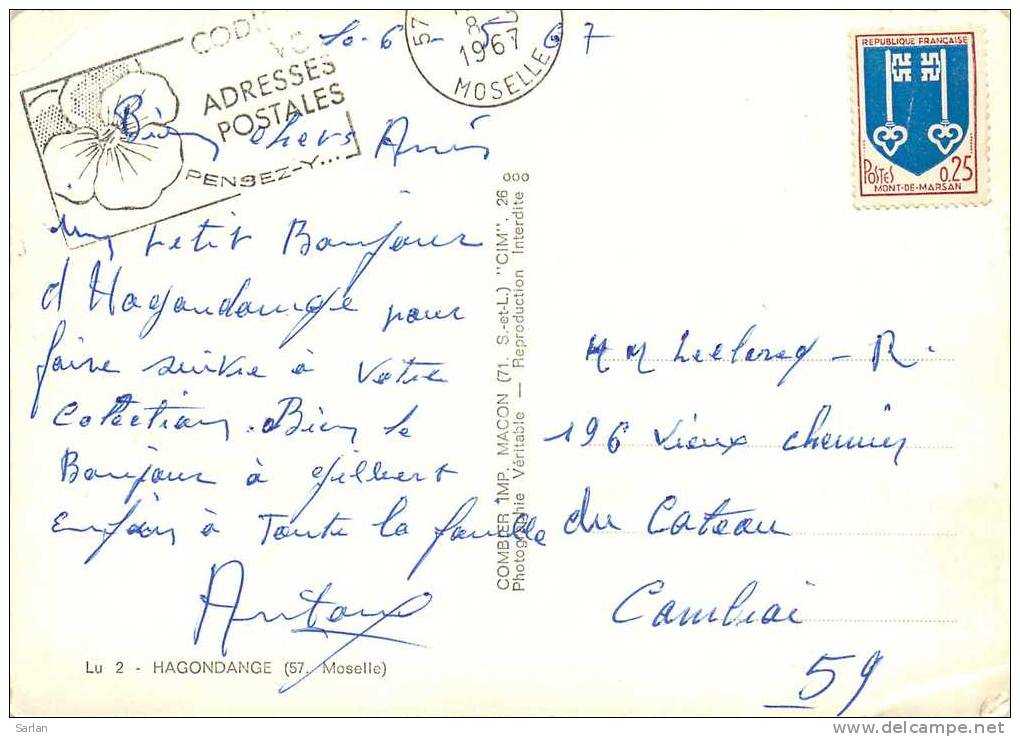 CODE
ADRESSES
POSTALES
PENSEZ-Y...
57
1967
MOSELLE
RÉPUBLIQUE FRANÇAISE
POSTES 0,25
MONT-DE-MARSAN
Bien chers Amis
un petit Bonjour
d Hagondange pour
faire suivre à votre
Collection. Bien le
Bonjour à Gilbert
Enfin à Toute la famille
Lu 2 - HAGONDANGE (57. Moselle)
COMBIER IMP. MACON (71. S.-et-L.) "CIM". 26 ooo
Photographie Véritable — Reproduction Interdite
MM Leclercq - R.
196 Vieux chemin
du Cateau
Cambrai
59
Sarlan
www.delcampe.net